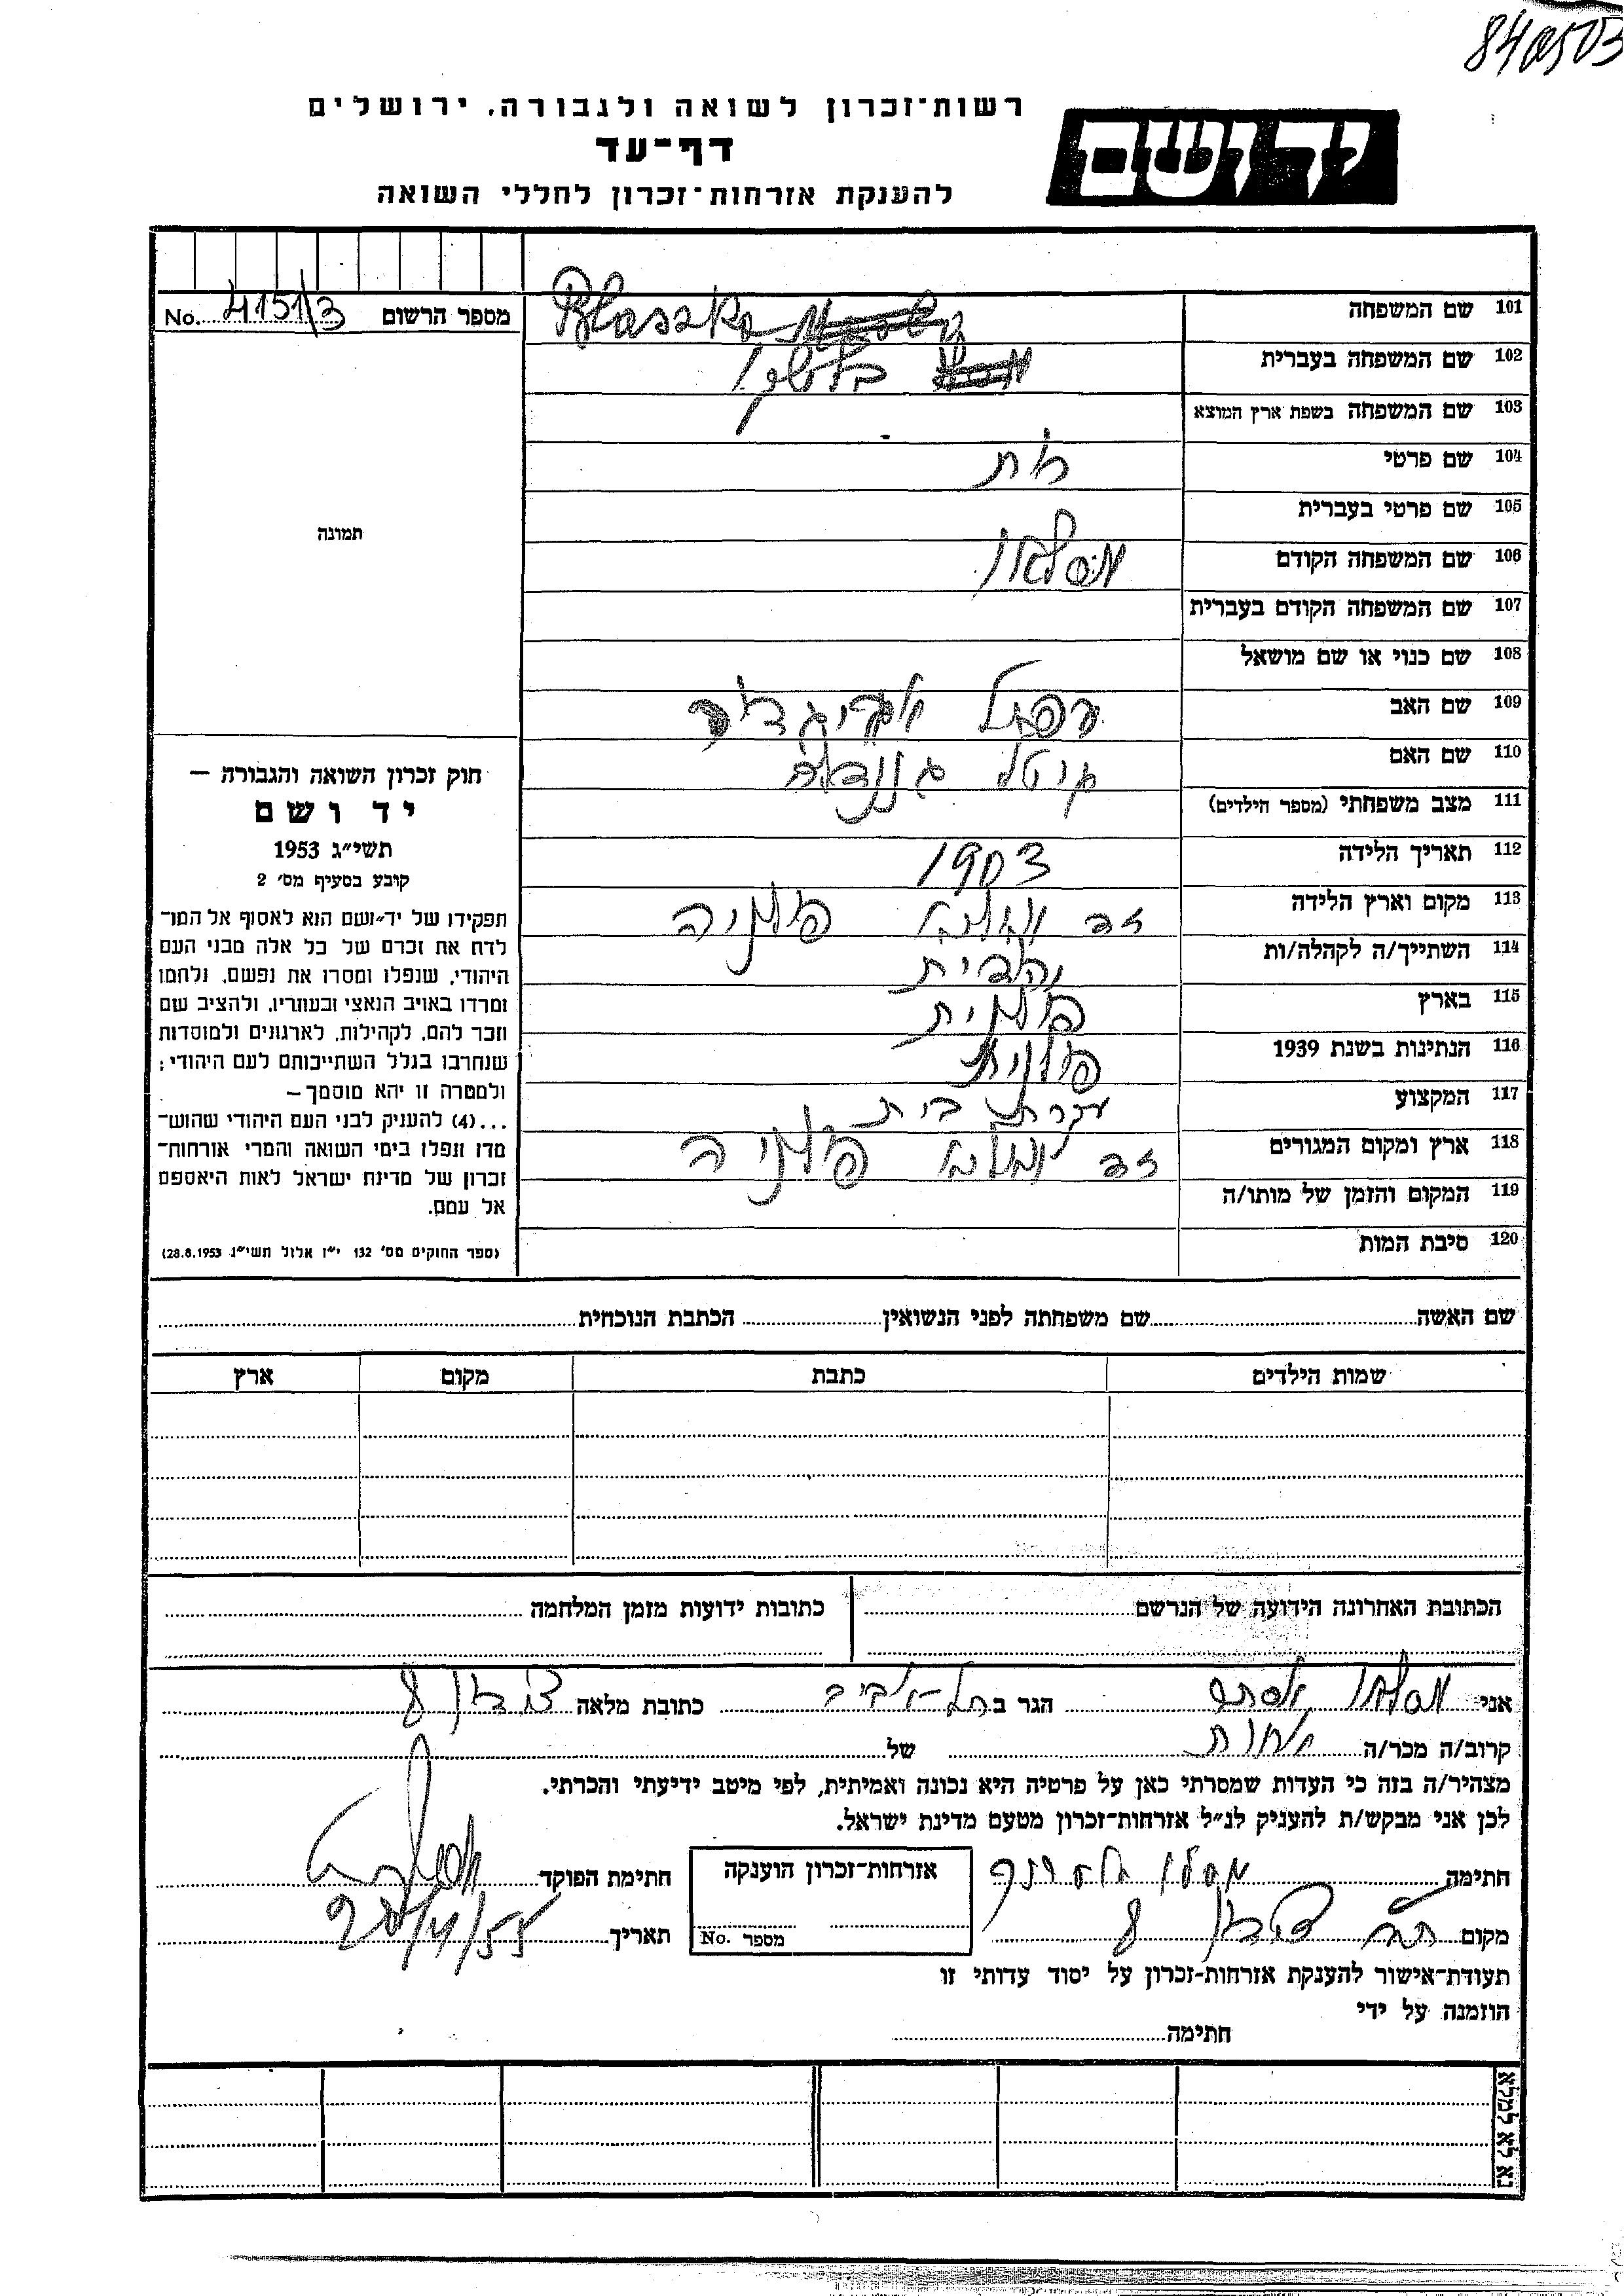 840503
רשות־זכרון לשואה ולגבורה, ירושלים
יד ושם
דף־עד
להענקת אזרחות־זכרון לחללי השואה
מספר הרשום No. 4151/3
101 שם המשפחה Blaszka
102 שם המשפחה בעברית
103 שם המשפחה בשפת ארץ המוצא
104 שם פרטי
105 שם פרטי בעברית
תמונה
106 שם המשפחה הקודם
107 שם המשפחה הקודם בעברית
108 שם כנוי או שם מושאל
109 שם האב
110 שם האם
111 מצב משפחתי (מספר הילדים)
112 תאריך הלידה 1903
113 מקום וארץ הלידה פולניה
114 השתייך/ה לקהלה/ות
115 בארץ פולנית
116 הנתינות בשנת 1939 פולנית
117 המקצוע עקרת בית
118 ארץ ומקום המגורים פולניה
119 המקום והזמן של מותו/ה
120 סיבת המות
חוק זכרון השואה והגבורה —
יד ושם
תשי״ג 1953
קובע בסעיף מס׳ 2
תפקידו של יד־ושם הוא לאסוף אל המו־
לדת את זכרם של כל אלה מבני העם
היהודי, שנפלו ומסרו את נפשם, נלחמו
ומרדו באויב הנאצי ובעוזריו, ולהציב שם
וזכר להם, לקהילות, לארגונים ולמוסדות
שנחרבו בגלל השתייכותם לעם היהודי;
ולמטרה זו יהא מוסמך —
...(4) להעניק לבני העם היהודי שהוש־
מדו ונפלו בימי השואה והמרי אזרחות־
זכרון של מדינת ישראל לאות היאספם
אל עמם.
(ספר החוקים מס׳ 132 י״ז אלול תשי״ג 28.8.1953)
שם האשה שם משפחתה לפני הנשואין הכתבת הנוכחית
שמות הילדים כתבת מקום ארץ
הכתובת האחרונה הידועה של הנרשם כתובות ידועות מזמן המלחמה
אני אסתר הגר ב תל־אביב כתובת מלאה 8
קרוב/ה מכר/ה אחות של
מצהיר/ה בזה כי העדות שמסרתי כאן על פרטיה היא נכונה ואמיתית, לפי מיטב ידיעתי והכרתי.
לכן אני מבקש/ת להעניק לנ״ל אזרחות־זכרון מטעם מדינת ישראל.
חתימה אזרחות־זכרון הוענקה חתימת הפוקד
מקום 8 מספר No. תאריך
תעודת־אישור להענקת אזרחות־זכרון על יסוד עדותי זו
הוזמנה על ידי
חתימה
נא לא למלא